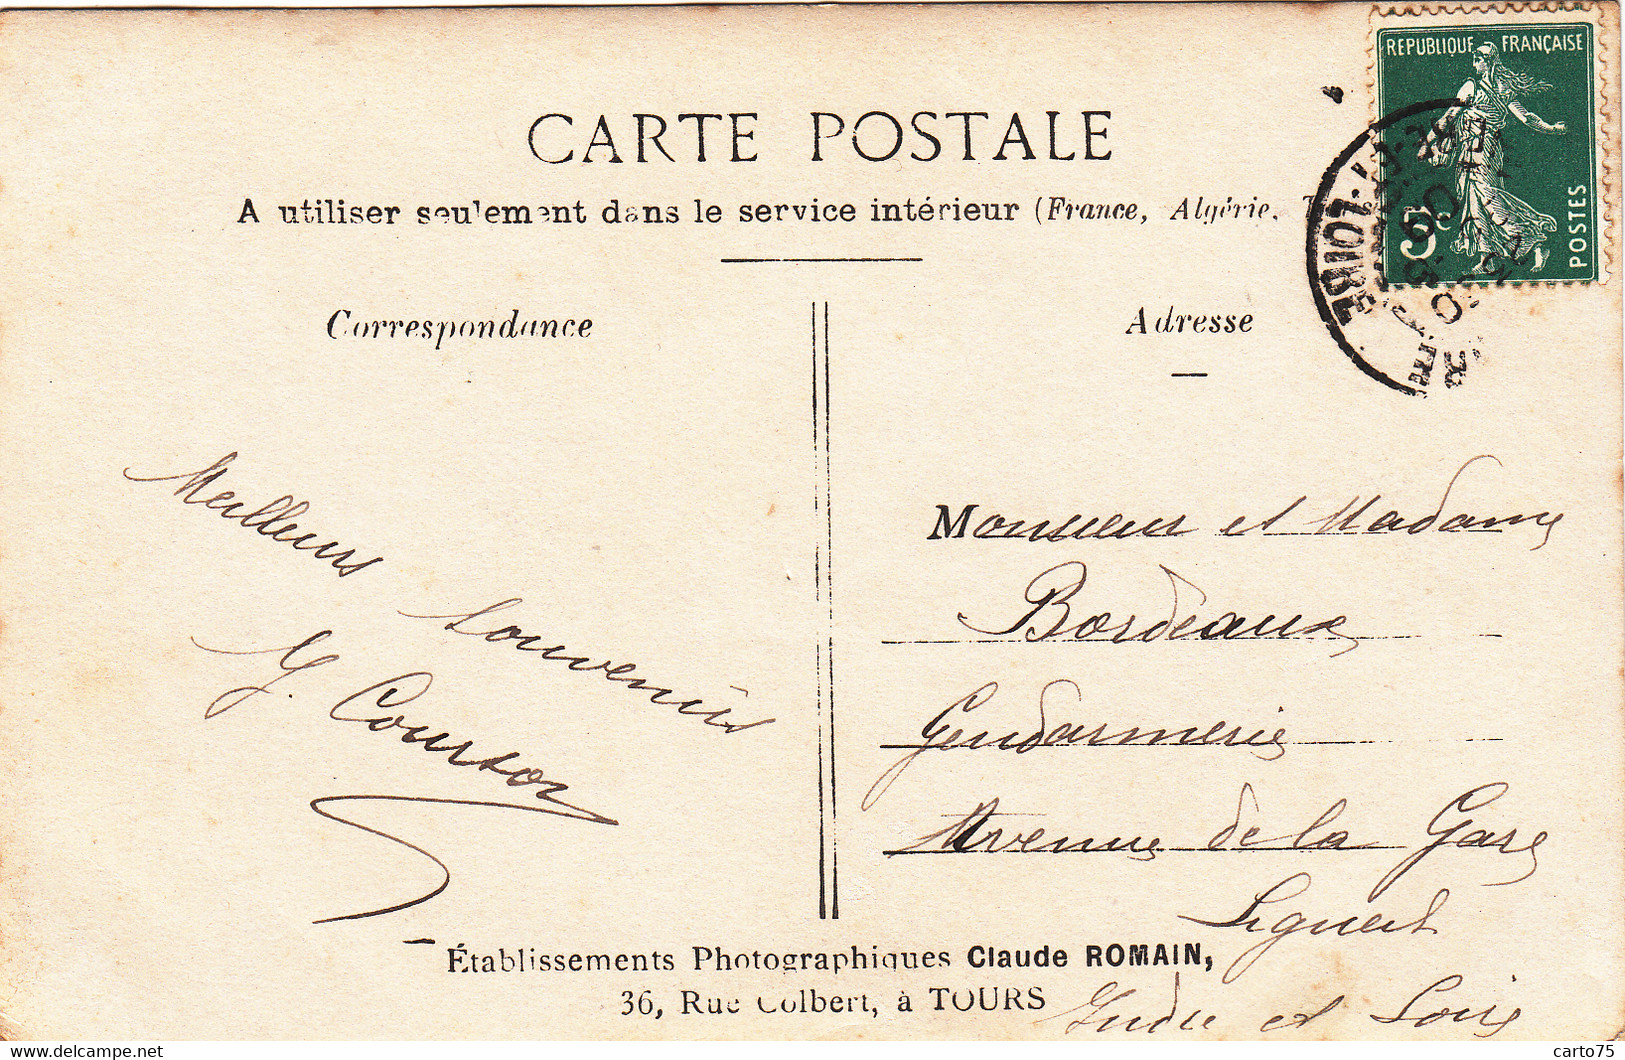 REPUBLIQUE FRANÇAISE
5c
POSTES
LOIRE
09
CARTE POSTALE
A utiliser seulement dans le service intérieur (France, Algérie,
Correspondance
Adresse
Meilleurs
Souvenirs
G. Courson
Monsieur et Madame
Bordeaux
Gendarmerie
Avenue de la Gare
Ligueil
Indre et Loire
Établissements Photographiques Claude ROMAIN,
36, Rue Colbert, à TOURS
delcampe.net
carto75